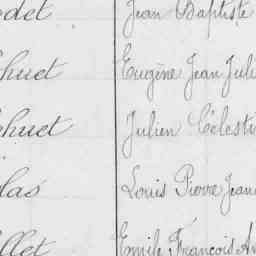 odet Jean Baptiste
huet Eugène Jean Juli
huet Julien Célesti
las Louis Pierre Jean
llet Emile François Au